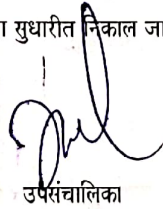 सुधारीत निकाल
उपसंचालिका